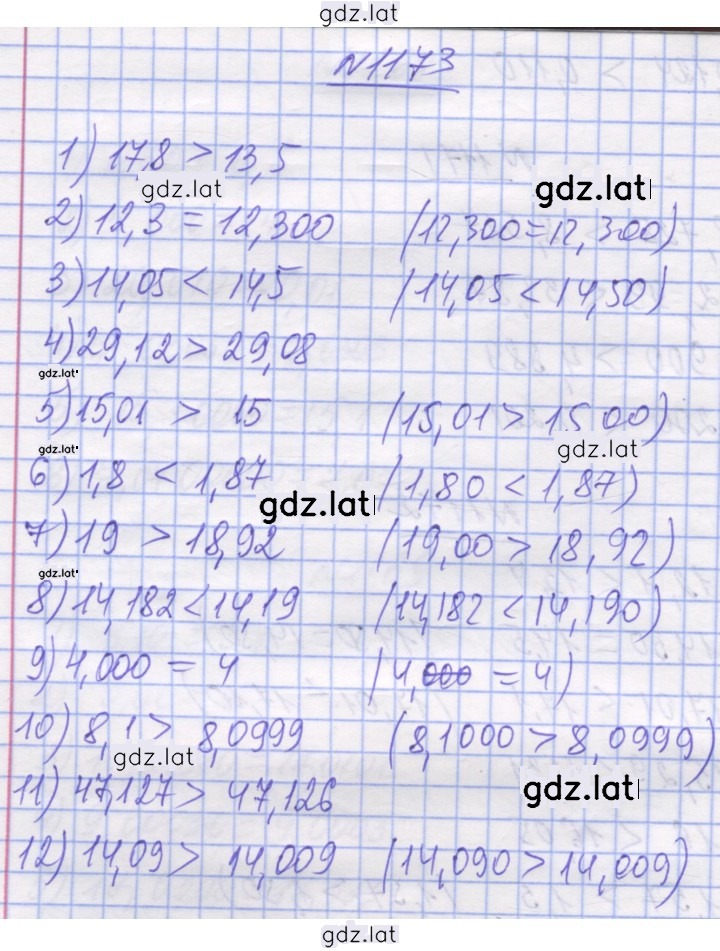 gdz.lat
N1173
1) 17,8 > 13,5
gdz.lat
gdz.lat
2) 12,3 = 12,300 (12,300=12,300)
3) 14,05 < 14,5 (14,05 < 14,50)
4) 29,12 > 29,08
gdz.lat
5) 15,01 > 15 (15,01 > 15,00)
gdz.lat
gdz.lat
6) 1,8 < 1,87 (1,80 < 1,87)
gdz.lat
7) 19 > 18,92 (19,00 > 18,92)
gdz.lat
8) 14,182 < 14,19 (14,182 < 14,190)
9) 4,000 = 4 (4,000 = 4)
10) 8,1 > 8,0999 (8,1000 > 8,0999)
gdz.lat
gdz.lat
11) 47,127 > 47,126
12) 14,09 > 14,009 (14,090 > 14,009)
gdz.lat